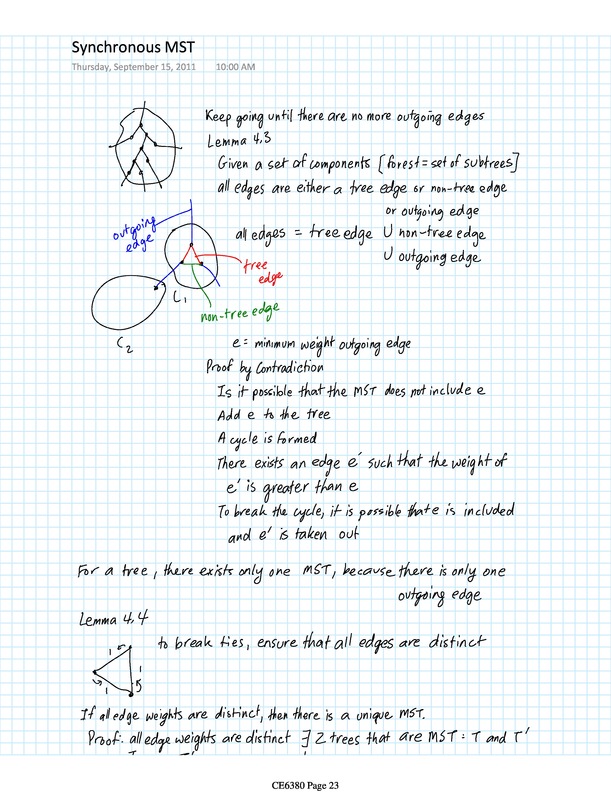 Synchronous MST
Thursday, September 15, 2011 10:00 AM
Keep going until there are no more outgoing edges
Lemma 4.3
Given a set of components [forest = set of subtrees]
all edges are either a tree edge or non-tree edge
or outgoing edge
all edges = tree edge U non-tree edge
U outgoing edge
outgoing
edge
tree
edge
C1
non-tree edge
C2
e = minimum weight outgoing edge
Proof by Contradiction
Is it possible that the MST does not include e
Add e to the tree
A cycle is formed
There exists an edge e' such that the weight of
e' is greater than e
To break the cycle, it is possible that e is included
and e' is taken out
For a tree, there exists only one MST, because there is only one
outgoing edge
Lemma 4.4
to break ties, ensure that all edges are distinct
1
1
1
If all edge weights are distinct, then there is a unique MST.
Proof: all edge weights are distinct ∃ 2 trees that are MST: T and T'
CE6380 Page 23